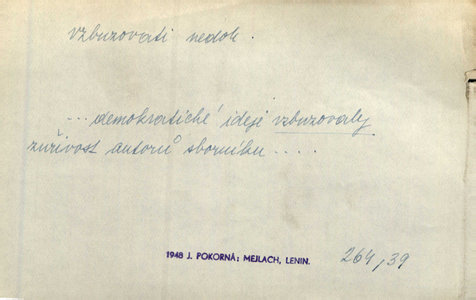 vzbuzovati nedok.
... demokratické ideje vzbuzovaly
zuřivost autorů sborníku .....
1948 J. POKORNÁ: MEJLACH, LENIN.
264,39